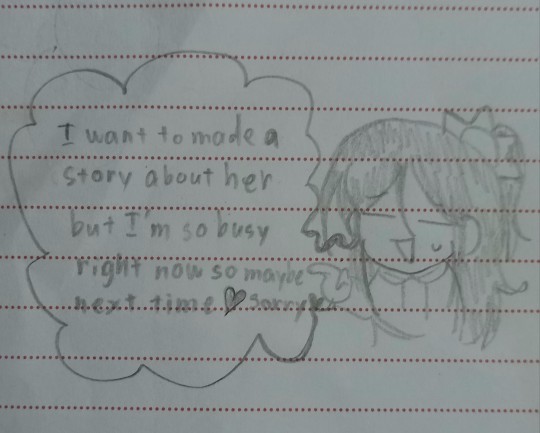 I want to made a
story about her
but I'm so busy
right now so maybe
next time ♡ sorry